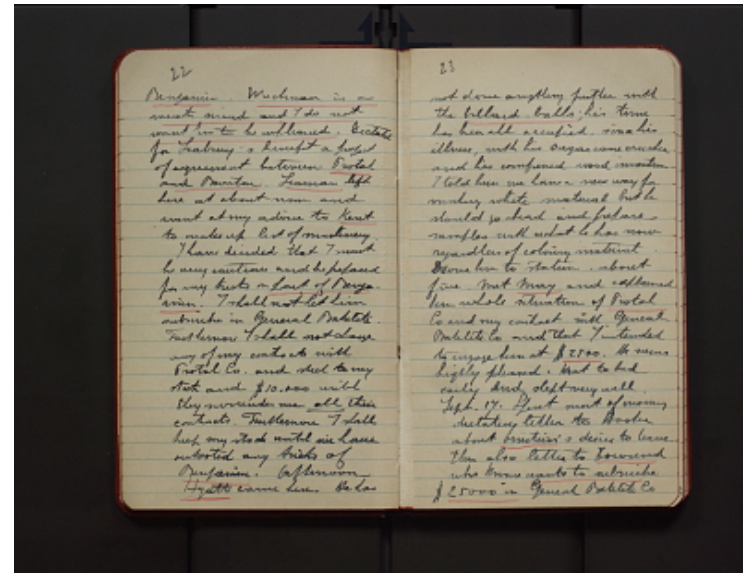 22
Benjamin. Wiechmann is a
meek mind and I do not
want it to be influenced. Dictate
for Seabury's benefit a project
of agreement between Protal
and Bowker. Seaman left
here at about noon and
went at my advice to Kent
to make up list of machinery.
I have decided that I must
be very cautious and be prepared
for any tricks on part of Benja-
min. I shall not let him
subscribe in General Bakelite.
Furthermore I shall not change
any of my contracts with
Protal Co. and steel to my
stock and $10.000 until
they surrender me all their
contracts. Furthermore I shall
keep my stock until we have
any tricks of
Benjamin. Afternoon
Hyatt came here. He has
23
not done anything further with
the billiard balls; his time
has been all occupied. his
illness, with his sugar cane crusher
and his compound wood
I told him we have a new way for
making white material but he
should go ahead and prepare
samples with what he has now
regardless of coloring material
Drove him to station. about
five. Met May and explained
him whole situation of Protal
Co and my contract with General
Bakelite Co and that I intended
to engage him at $2500. He seems
highly pleased. Went to bed
early and slept very well.
Sept. 17. Spent most of morning
dictating letter to
about 's desire to leave.
Then also letter to Townsend
who know wants to subscribe
$25000 in General Bakelite Co